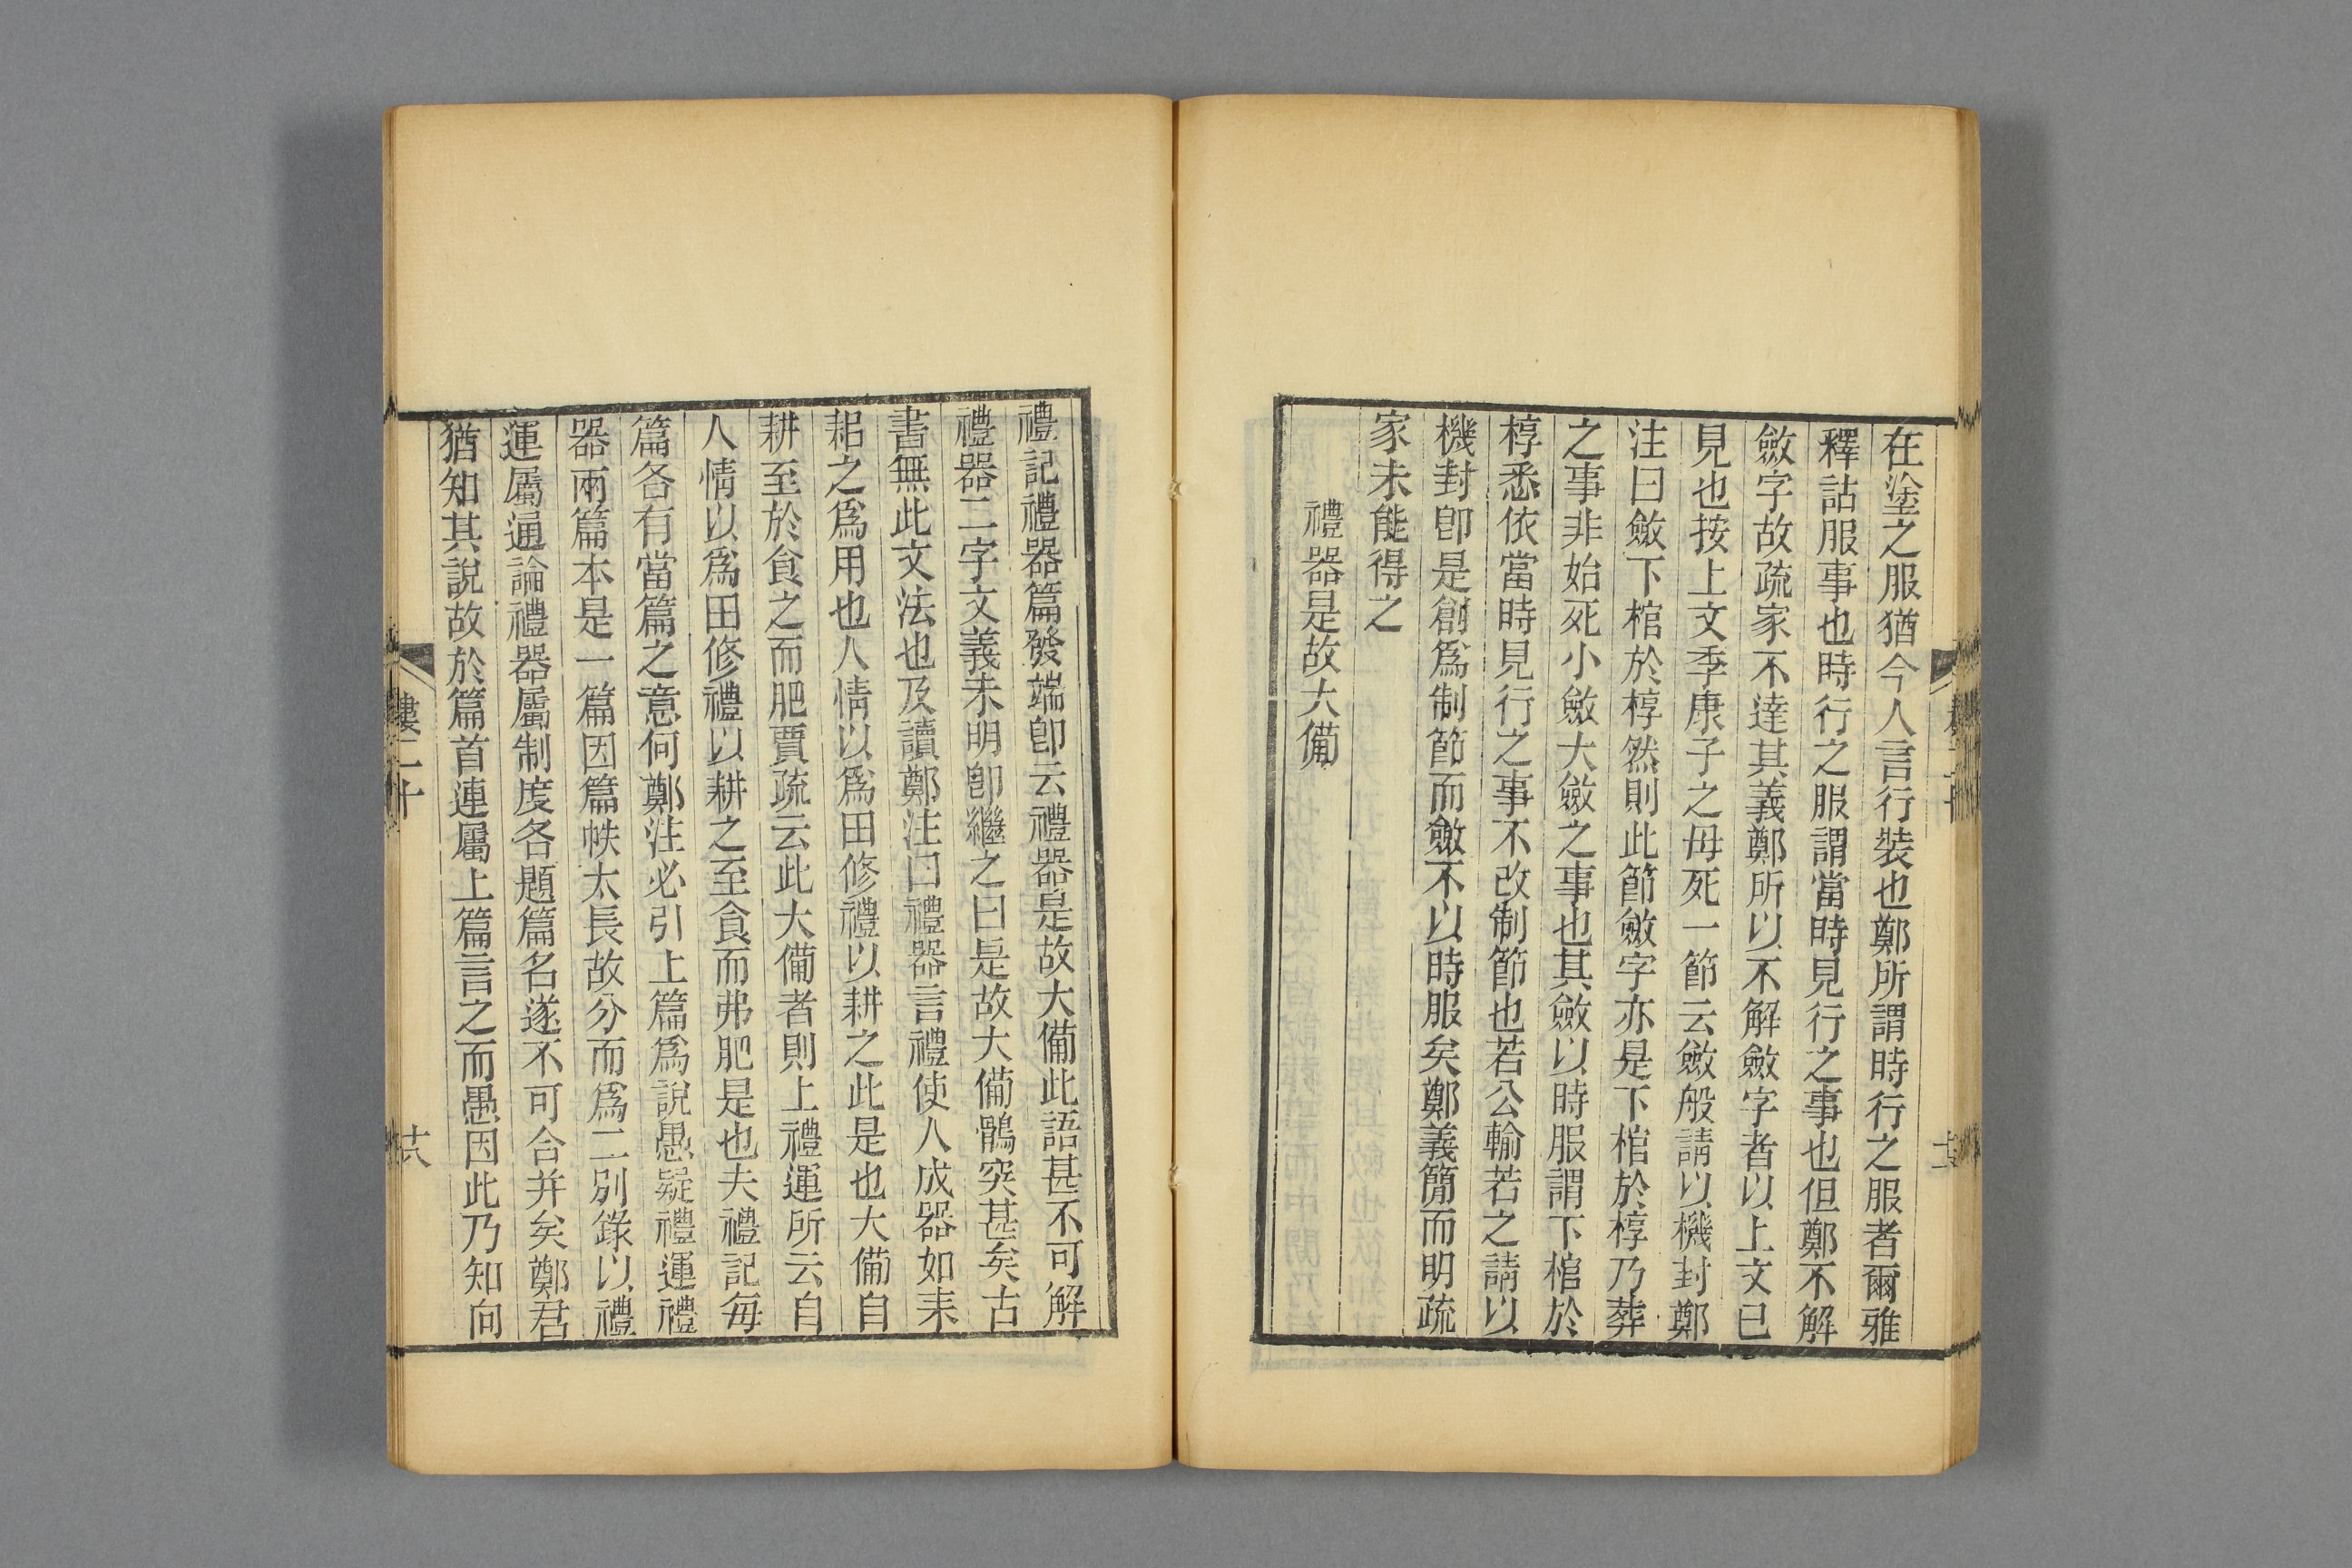 在塗之服猶今人言行裝也鄭所謂時行之服者爾雅
釋詁服事也時行之服謂當時見行之事也但鄭不解
斂字故疏家不達其義鄭所以不解斂字者以上文已
見也按上文季康子之母死一節云斂般請以機封鄭
注曰斂下棺於椁然則此節斂字亦是下棺於椁乃葬
之事非始死小斂大斂之事也其斂以時服謂下棺於
椁悉依當時見行之事不改制節也若公輸若之請以
機封卽是創爲制節而斂不以時服矣鄭義簡而明疏
家未能得之
禮器是故大備
禮記禮器篇發端卽云禮器是故大備此語甚不可解
禮器二字文義未明卽繼之曰是故大備鶻突甚矣古
書無此文法也及讀鄭注曰禮器言禮使人成器如耒
耜之爲用也人情以爲田修禮以耕之此是也大備自
耕至於食之而肥賈疏云此大備者則上禮運所云自
人情以爲田修禮以耕之至食而弗肥是也夫禮記每
篇各有當篇之意何鄭注必引上篇爲說愚疑禮運禮
器兩篇本是一篇因篇帙太長故分而爲二別錄以禮
運屬通論禮器屬制度各題篇名遂不可合并矣鄭君
猶知其說故於篇首連屬上篇言之而愚因此乃知向
樓二十